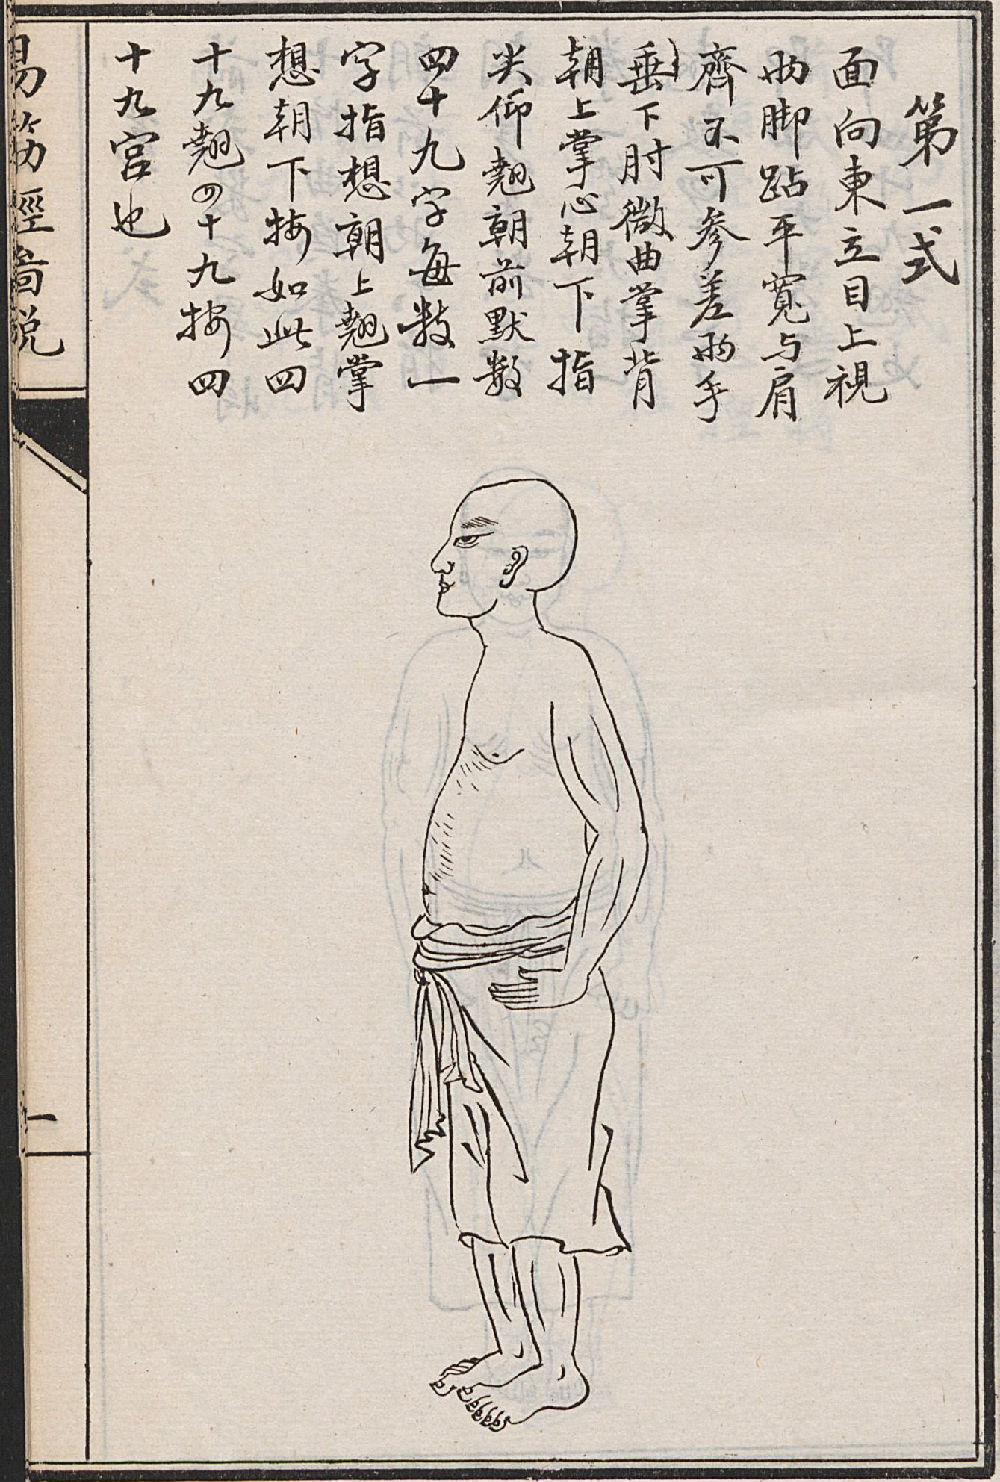 第一式
面向東立目上視
两脚跕平寬与肩
齊不可參差两手
垂下肘微曲掌背
朝上掌心朝下指
尖仰翹朝前默数
四十九字每数一
字指想朝上翹掌
想朝下按如此四
十九翹四十九按四
十九宫也
易筋經啚說
一